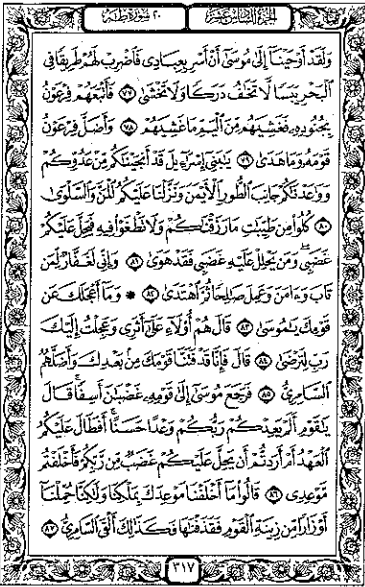 الجزء السادس عشر ٢٠ سورة طه
وَلَقَدْ أَوْحَيْنَآ إِلَىٰ مُوسَىٰٓ أَنْ أَسْرِ بِعِبَادِى فَٱضْرِبْ لَهُمْ طَرِيقًا فِى
ٱلْبَحْرِ يَبَسًا لَّا تَخَٰفُ دَرَكًا وَلَا تَخْشَىٰ ٧٧ فَأَتْبَعَهُمْ فِرْعَوْنُ
بِجُنُودِهِۦ فَغَشِيَهُم مِّنَ ٱلْيَمِّ مَا غَشِيَهُمْ ٧٨ وَأَضَلَّ فِرْعَوْنُ
قَوْمَهُۥ وَمَا هَدَىٰ ٧٩ يَٰبَنِىٓ إِسْرَٰٓءِيلَ قَدْ أَنجَيْنَٰكُم مِّنْ عَدُوِّكُمْ
وَوَٰعَدْنَٰكُمْ جَانِبَ ٱلطُّورِ ٱلْأَيْمَنَ وَنَزَّلْنَا عَلَيْكُمُ ٱلْمَنَّ وَٱلسَّلْوَىٰ
٨٠ كُلُوا۟ مِن طَيِّبَٰتِ مَا رَزَقْنَٰكُمْ وَلَا تَطْغَوْا۟ فِيهِ فَيَحِلَّ عَلَيْكُمْ
غَضَبِى وَمَن يَحْلِلْ عَلَيْهِ غَضَبِى فَقَدْ هَوَىٰ ٨١ وَإِنِّى لَغَفَّارٌ لِّمَن
تَابَ وَءَامَنَ وَعَمِلَ صَٰلِحًا ثُمَّ ٱهْتَدَىٰ ٨٢ ۞ وَمَآ أَعْجَلَكَ عَن
قَوْمِكَ يَٰمُوسَىٰ ٨٣ قَالَ هُمْ أُو۟لَآءِ عَلَىٰٓ أَثَرِى وَعَجِلْتُ إِلَيْكَ
رَبِّ لِتَرْضَىٰ ٨٤ قَالَ فَإِنَّا قَدْ فَتَنَّا قَوْمَكَ مِنۢ بَعْدِكَ وَأَضَلَّهُمُ
ٱلسَّامِرِىُّ ٨٥ فَرَجَعَ مُوسَىٰٓ إِلَىٰ قَوْمِهِۦ غَضْبَٰنَ أَسِفًا ۚ قَالَ
يَٰقَوْمِ أَلَمْ يَعِدْكُمْ رَبُّكُمْ وَعْدًا حَسَنًا ۚ أَفَطَالَ عَلَيْكُمُ
ٱلْعَهْدُ أَمْ أَرَدتُّمْ أَن يَحِلَّ عَلَيْكُمْ غَضَبٌ مِّن رَّبِّكُمْ فَأَخْلَفْتُم
مَّوْعِدِى ٨٦ قَالُوا۟ مَآ أَخْلَفْنَا مَوْعِدَكَ بِمَلْكِنَا وَلَٰكِنَّا حُمِّلْنَآ
أَوْزَارًا مِّن زِينَةِ ٱلْقَوْمِ فَقَذَفْنَٰهَا فَكَذَٰلِكَ أَلْقَى ٱلسَّامِرِىُّ ٨٧
٣١٧